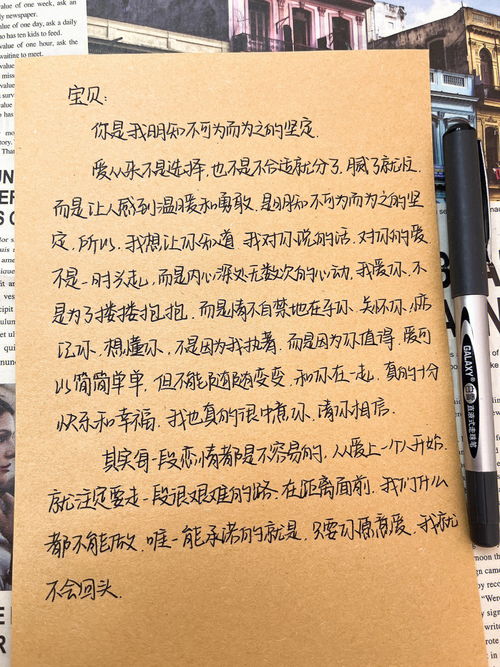 宝贝:
你是我明知不可为而为之的坚定.
爱从来不是选择,也不是不合适就分了,腻了就仅.
而是让人感到温暖和勇敢.是明知不可为而为之的坚
定.所以.我想让你知道 我对你说的话.对你的爱
不是一时兴起,而是内心深处无数次的心动.我爱你.不
是为了搂搂抱抱.而是情不自禁地在乎你.关怀你.
你.想懂你.不是因为我执着.而是因为你值得.爱可
以简简单单.但不能随随变变.和你在一起.真的十分
快乐和幸福.我也真的很中意你.请你相信.
其实每一段恋情都是不容易的,从爱上一个人开始.
就注定要走一段很艰难的路.在距离面前.我们什么
都不能做.唯一能承诺的就是.只要你愿意爱.我就
不会回头.
GALAXY®
直液式走珠笔
value of one week, ask an
newspaper.
value of one day, ask a daily
who has ten kids to feed.
value of one hour, ask the
waiting to meet.